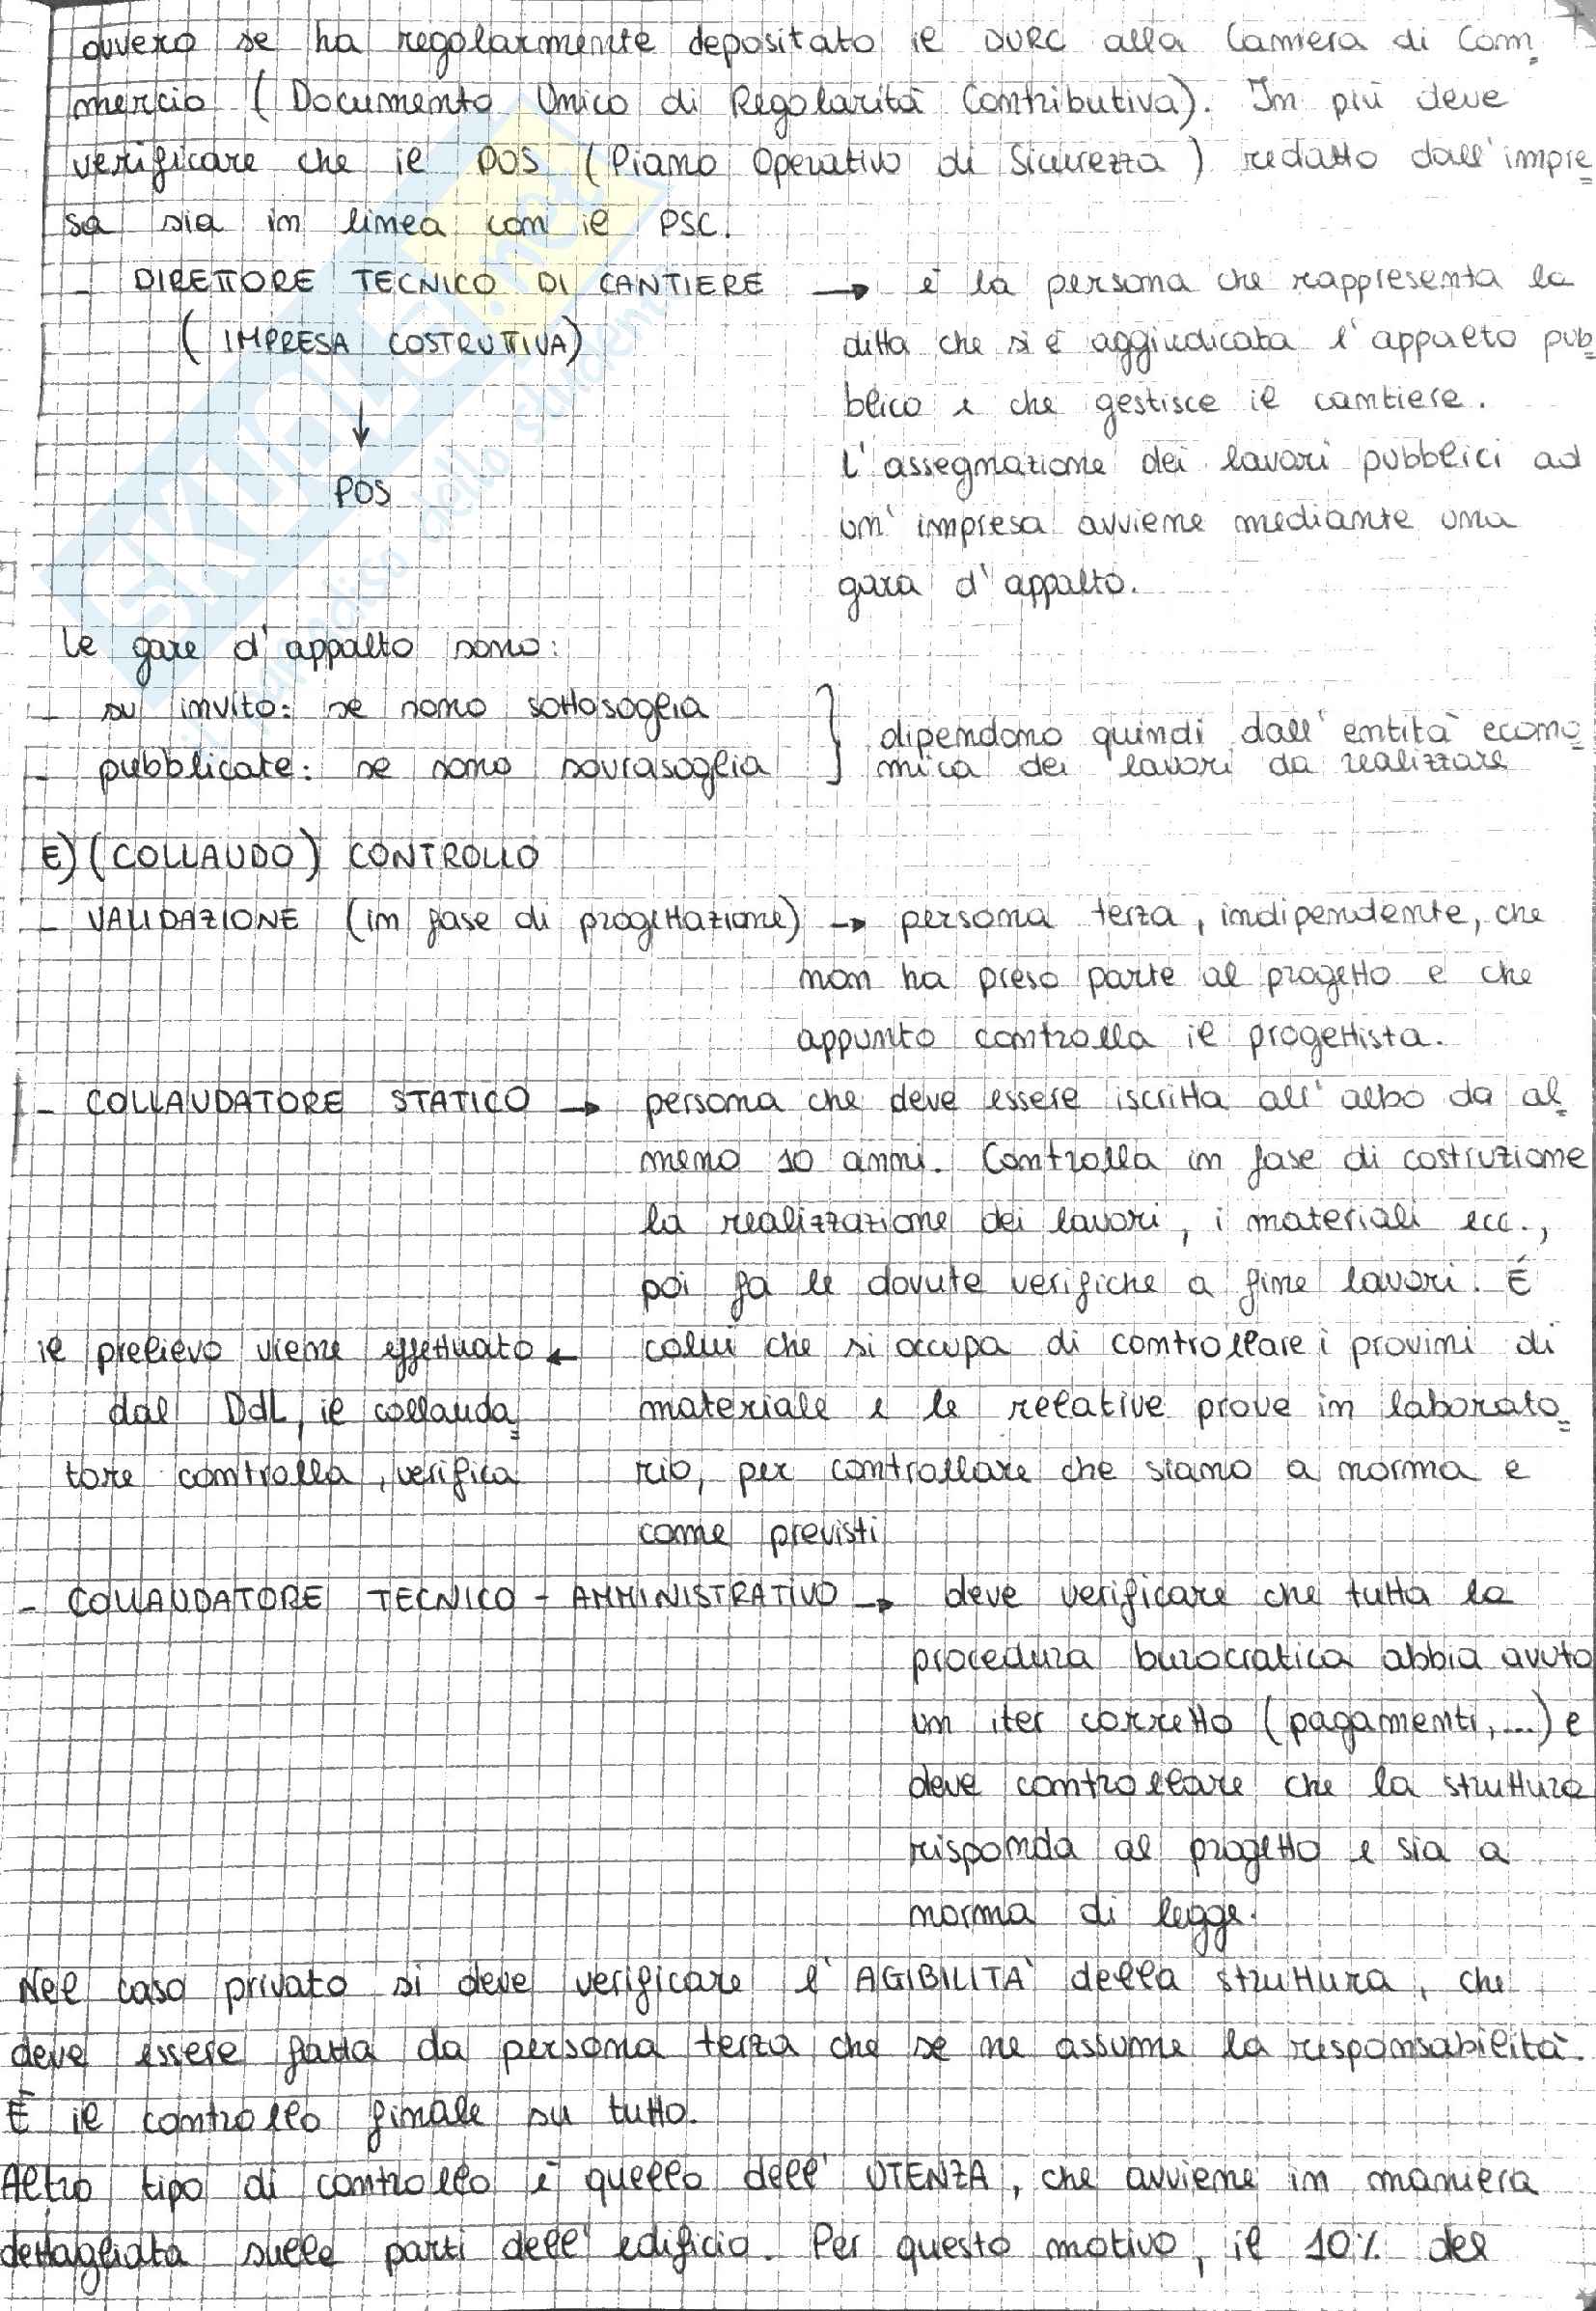 ovvero se ha regolarmente depositato il DURC alla Camera di Com=
mercio (Documento Unico di Regolarità Contributiva). In più deve
verificare che il POS (Piano Operativo di Sicurezza) redatto dall'impre=
sa sia in linea con il PSC.
- DIRETTORE TECNICO DI CANTIERE → è la persona che rappresenta la
(IMPRESA COSTRUTTIVA) ditta che si è aggiudicata l'appalto pub=
blico e che gestisce il cantiere.
↓ L'assegnazione dei lavori pubblici ad
POS un'impresa avviene mediante una
gara d'appalto.
Le gare d'appalto sono:
- su invito: se sono sottosoglia
- pubblicate: se sono sovrasoglia
} dipendono quindi dall'entità econo=
mica dei lavori da realizzare
E) (COLLAUDO) CONTROLLO
- VALIDAZIONE (in fase di progettazione) → persona terza, indipendente, che
non ha preso parte al progetto e che
appunto controlla il progettista.
- COLLAUDATORE STATICO → persona che deve essere iscritta all'albo da al=
meno 10 anni. Controlla in fase di costruzione
la realizzazione dei lavori, i materiali ecc.,
poi fa le dovute verifiche a fine lavori. É
colui che si occupa di controllare i provini di
materiale e le relative prove in laborato=
rio, per controllare che siano a norma e
come previsti
il prelievo viene effettuato ←
dal DdL, il collauda=
tore controlla, verifica
- COLLAUDATORE TECNICO - AMMINISTRATIVO → deve verificare che tutta la
procedura burocratica abbia avuto
un iter corretto (pagamenti, ...) e
deve controllare che la struttura
risponda al progetto e sia a
norma di legge.
Nel caso privato si deve verificare l'AGIBILITA' della struttura, che
deve essere fatta da persona terza che se ne assume la responsabilità.
É il controllo finale su tutto.
Altro tipo di controllo è quello dell'UTENZA, che avviene in maniera
dettagliata sulle parti dell'edificio. Per questo motivo, il 10% del